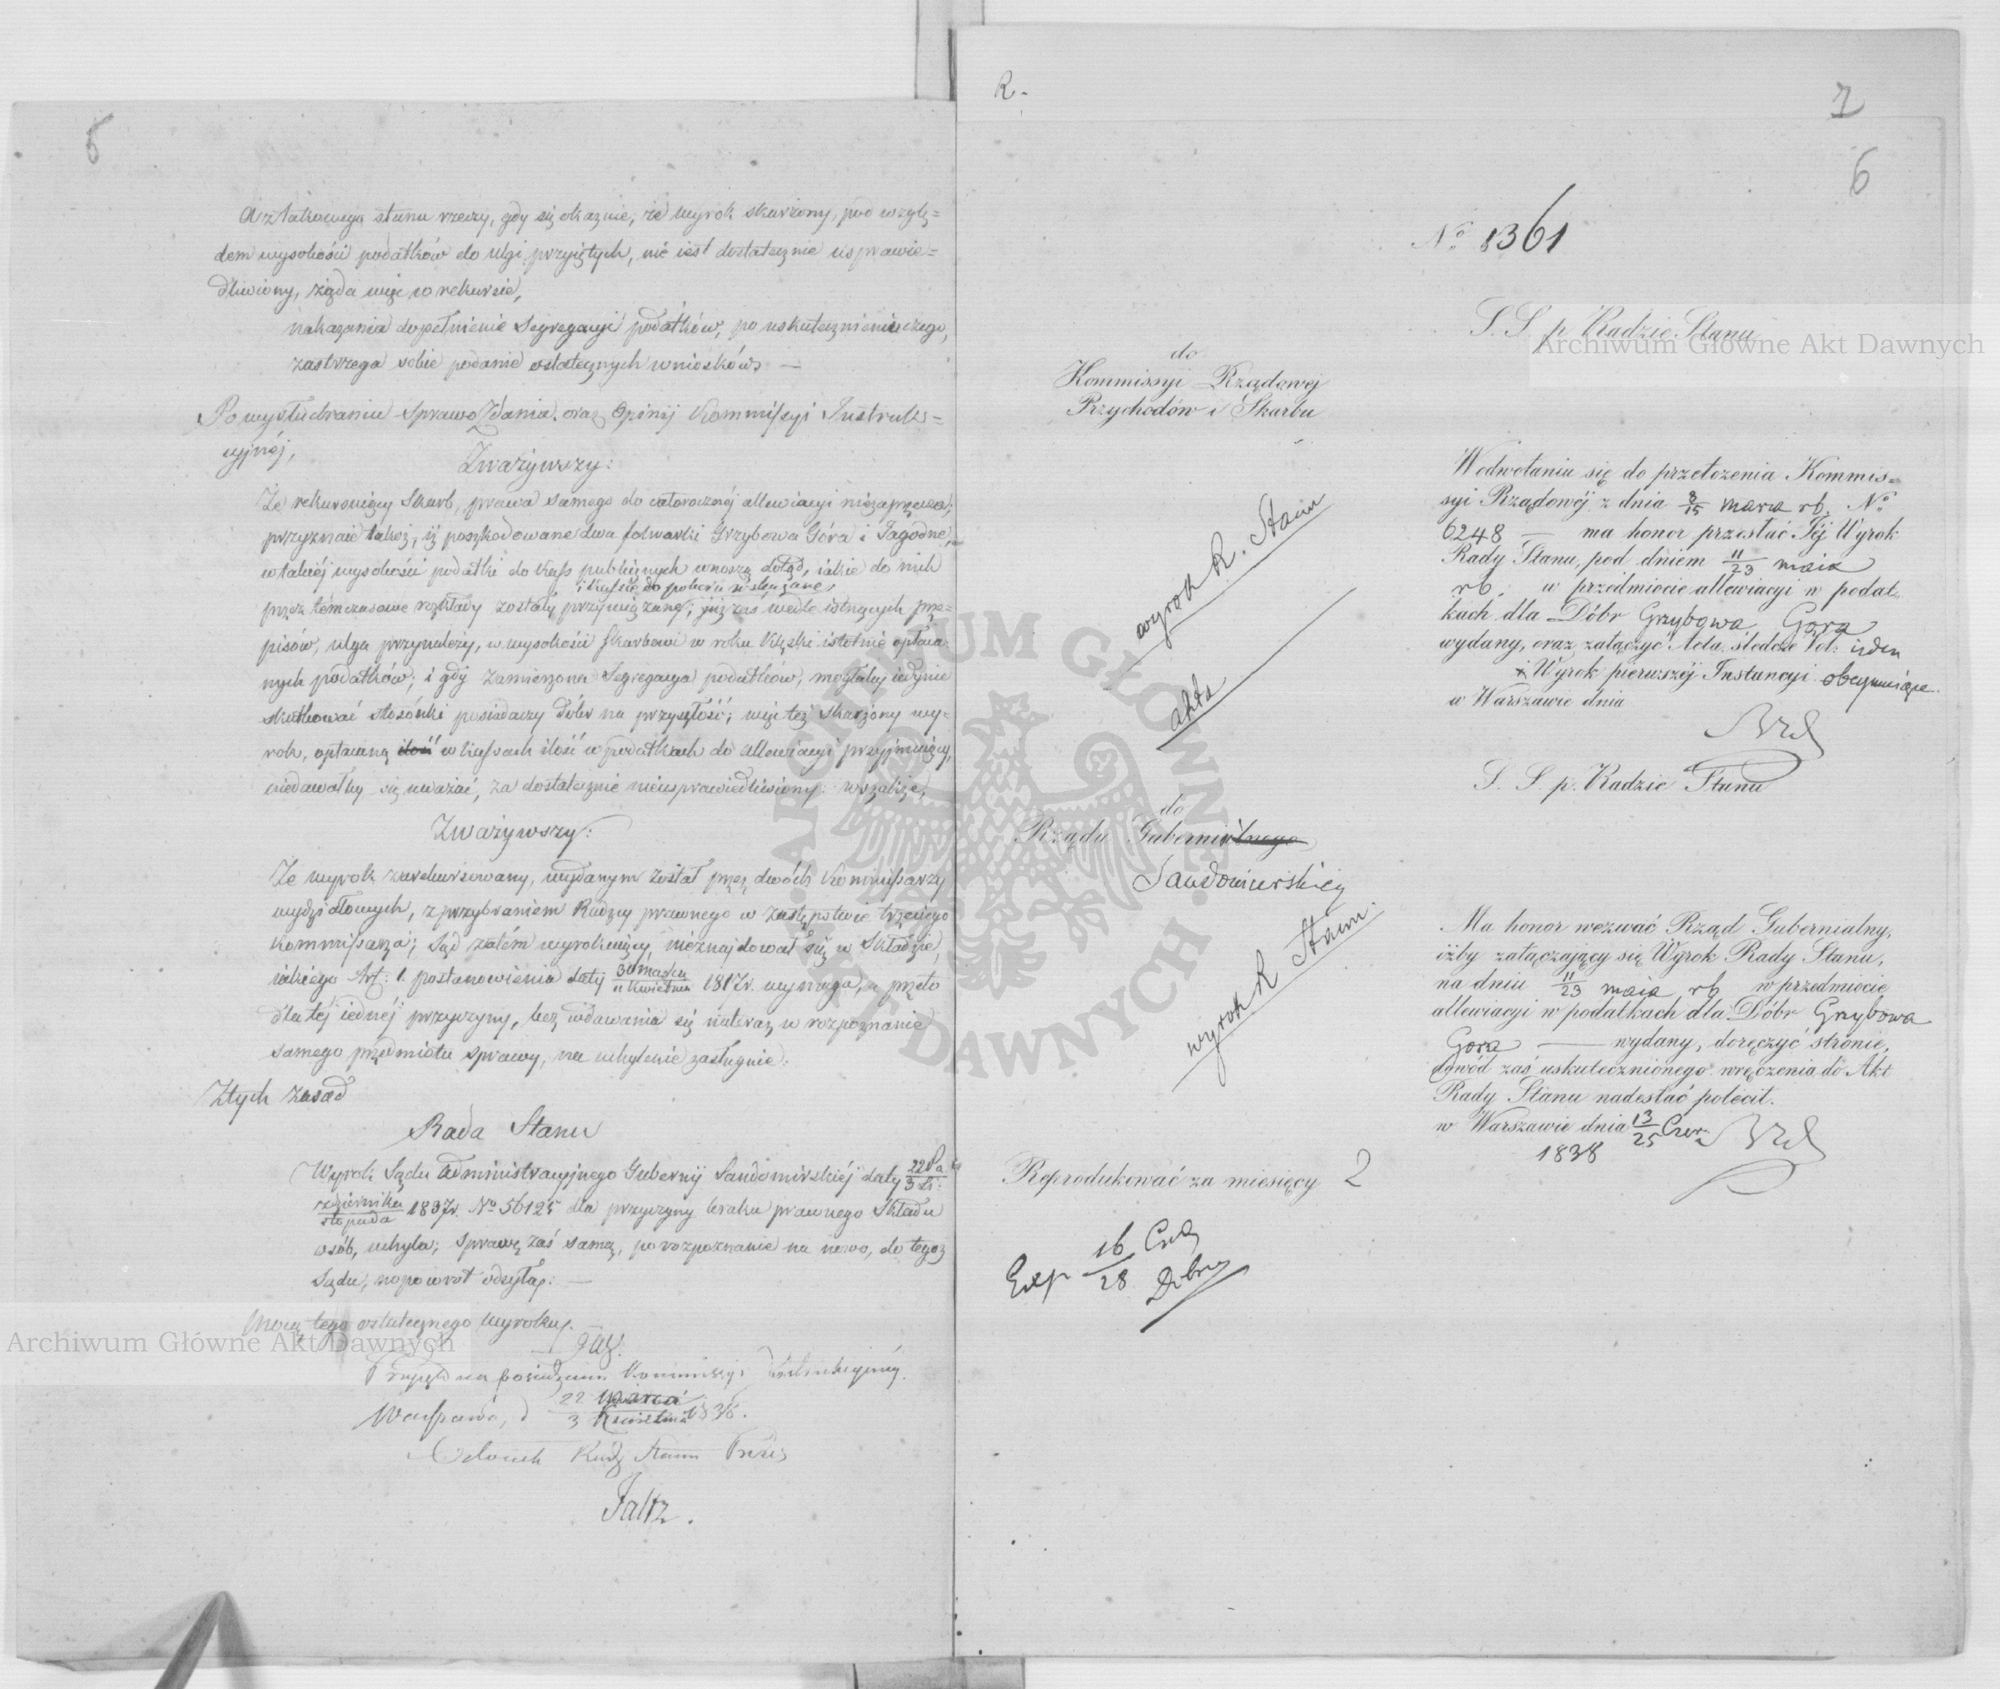 5
A z takowego stanu rzeczy, gdy się okazuie, że wyrok skarżony, pod wzglę=
dem wysokości podatków do ulgi przyiętych, nie iest dostatecznie usprawie=
dliwiony, żąda więc w rekursie,
nakazania dopełnienie Segregacyi podatków, po uskutecznieniu czego,
zastrzega sobie podanie ostatecznych wniosków. —
Po wysłuchaniu Sprawozdania oraz Opinij Kommissyi Instruk=
cyjnéj,
Zważywszy:
Że rekuruiący Skarb, prawa samego do całorocznéj allewiacyi niezaprzecza;
przyznaie także, iż poszkodowane dwa folwarki Grzybowa Góra i Jagodne,
w takiéj wysokości podatki do Kass publicznych wnoszą dotąd, iakie do nich
i Kassie do poboru wskazane,
przez témczasowe rozkłady zostały przywiązane; już zaś wedle istnących prze=
pisów, ulga przynależy, w wysokości Skarbowi w roku klęski istotnie opłaca=
nych podatków; i gdy zamierzona Segregacya podatków, mogłaby iedynie
skutkować stosunki posiadaczy Dóbr na przyszłość; więc też skarżony wy=
rok, opłacaną ilość w kassach ilość w podatkach do allewiacyi przyjmuiący,
niedawałby się uważać, za dostatecznie nieusprawiedliwiony: wszakże,
Zważywszy:
Że wyrok zarekursowany, wydanym został przez dwóch Kommissarzy
wydziałowych, z przybraniem Radzcy prawnego w zastępstwie trzeciego
Kommissarza; Sąd zatém wyrokuiący, nieznajdował się w Składzie,
iakiego Art: 1. postanowienia daty 30 Marca / 11 Kwietnia 1817 r. wymaga, a przeto
dla téj iednéj przyczyny, bez wdawania się natéraz w rozpoznanie
samego przedmiotu sprawy, na uchylenie zasługuie:
Z tych zasad
Rada Stanu
Wyrok Sądu Administracyjnego Gubernij Sandomirskiéj daty 22 Pa / 3 Li:
zdziernika / stopada 1837 r. No 56125 dla przyczyny braku prawnego Składu
osób, uchyla; sprawę zaś samą, po rozpoznanie na nowo, do tegoż
Sądu, napowrót odsyła: —
Mocą tego ostatecznego wyroku.
Przyjęto na posiedzeniu Kommissyi Instrukcyjnéj.
Warszawa, d 22 Marca / 3 Kwietnia 1838.
Członek Rady Stanu Prezes
Faltz.
R.
7
6
No 1361
S. S. p. Radzie Stanu
do
Kommissyi Rządowej
Przychodów i Skarbu
Wodwołaniu się do przełożenia Kommis=
syi Rządowéj z dnia 3/15 marca rb. No
6248 — ma honor przesłać Jéj Wyrok
Rady Stanu, pod dniem 11/23 maia
rb. w przedmiocie allewiacyi w podat=
kach dla Dóbr Grzybowa Góra
wydany, oraz załączyć Acta śledcze Vol: ieden
i Wyrok pierwszéj Instancyi obeymuiące.
w Warszawie dnia
wyrok R. Stanu
akta
S. S. p. Radzie Stanu
do
Rządu Gubernialnego
Sandomierskiey
wyrok R Stanu.
Ma honor wezwać Rząd Gubernialny,
iżby załączający się Wyrok Rady Stanu,
na dniu 11/23 maia rb w przedmiocie
allewiacyi w podatkach dla Dóbr Grzybowa
Gora — wydany, doręczyć stronie,
dowód zaś uskutecznionego wręczenia do Akt
Rady Stanu nadesłać polecił.
w Warszawie dnia 13/25 Czer:
1838
Reprodukować za miesięcy 2
Exp 16/28 Cze
Archiwum Główne Akt Dawnych
Archiwum Główne Akt Dawnych
ARCHIWUM GŁÓWNE AKT DAWNYCH